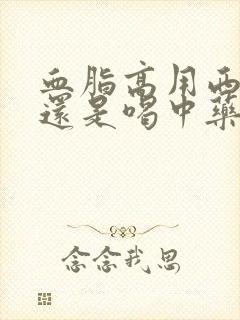 血脂高用西
還是喝中藥
念念我思